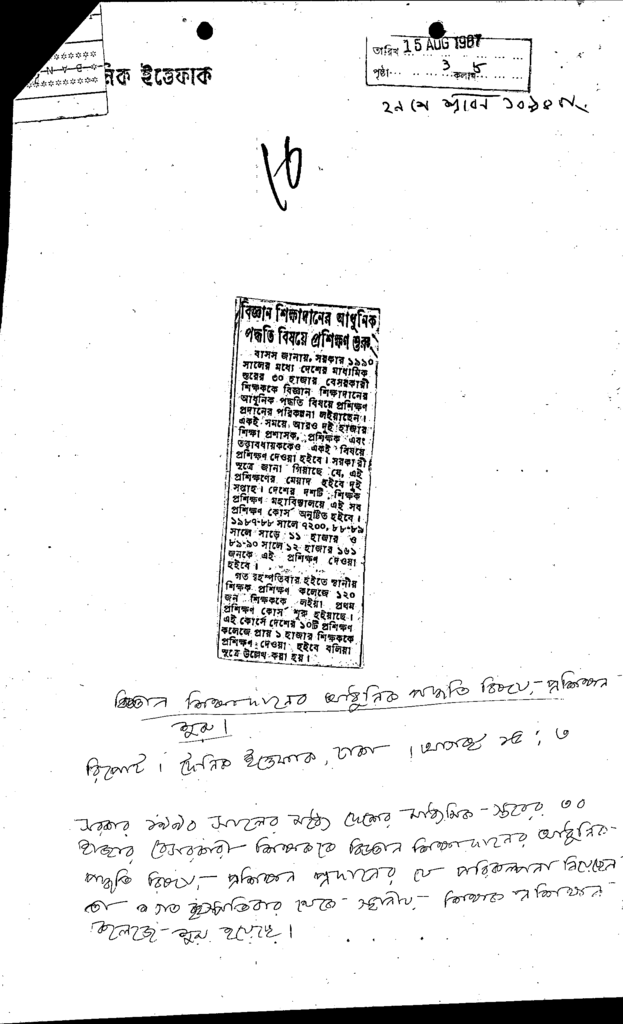 নিক ইত্তেফাক
তারিখ 15 AUG 1987
পৃষ্ঠা 3 কলাম ৮
বিজ্ঞান শিক্ষাদানের আধুনিক
পদ্ধতি বিষয়ে প্রশিক্ষণ শুরু
বাসস জানায়, সরকার ১৯৯০
সালের মধ্যে দেশের মাধ্যমিক
স্তরের ৩০ হাজার বেসরকারী
শিক্ষককে বিজ্ঞান শিক্ষাদানের
আধুনিক পদ্ধতি বিষয়ে প্রশিক্ষণ
প্রদানের পরিকল্পনা লইয়াছেন।
একই সময়ে আরও দুই হাজার
শিক্ষা প্রশাসক, প্রশিক্ষক এবং
তত্ত্বাবধায়ককেও একই বিষয়ে
প্রশিক্ষণ দেওয়া হইবে। সরকারী
সূত্রে জানা গিয়াছে যে, এই
প্রশিক্ষণের মেয়াদ হইবে দুই
সপ্তাহ। দেশের দশটি শিক্ষক
প্রশিক্ষণ মহাবিদ্যালয়ে এই সব
প্রশিক্ষণ কোর্স অনুষ্ঠিত হইবে।
১৯৮৭-৮৮ সালে ৭২০০, ৮৮-৮৯
সালে সাড়ে ১১ হাজার ও
৮৯-৯০ সালে ১২ হাজার ১৬১
জনকে এই প্রশিক্ষণ দেওয়া
হইবে।
গত বৃহস্পতিবার হইতে স্থানীয়
শিক্ষক প্রশিক্ষণ কলেজে ১২০
জন শিক্ষককে লইয়া প্রথম
প্রশিক্ষণ কোর্স শুরু হইয়াছে।
এই কোর্সে দেশের ১০টি প্রশিক্ষণ
কলেজে প্রায় ১ হাজার শিক্ষককে
প্রশিক্ষণ দেওয়া হইবে বলিয়া
সূত্রে উল্লেখ করা হয়।
বিজ্ঞান শিক্ষাদানের আধুনিক পদ্ধতি বিষয়ে প্রশিক্ষণ
শুরু।
রিপোর্ট। দৈনিক ইত্তেফাক, ঢাকা। আগস্ট ১৫; ৩
সরকার ১৯৯০ সালের মধ্যে দেশের মাধ্যমিক স্তরের ৩০
হাজার বেসরকারী শিক্ষককে বিজ্ঞান শিক্ষাদানের আধুনিক
পদ্ধতি বিষয়ে প্রশিক্ষণ প্রদানের যে পরিকল্পনা নিয়েছেন
তা গত বৃহস্পতিবার থেকে স্থানীয় শিক্ষক প্রশিক্ষণ
কলেজে শুরু হয়েছে।